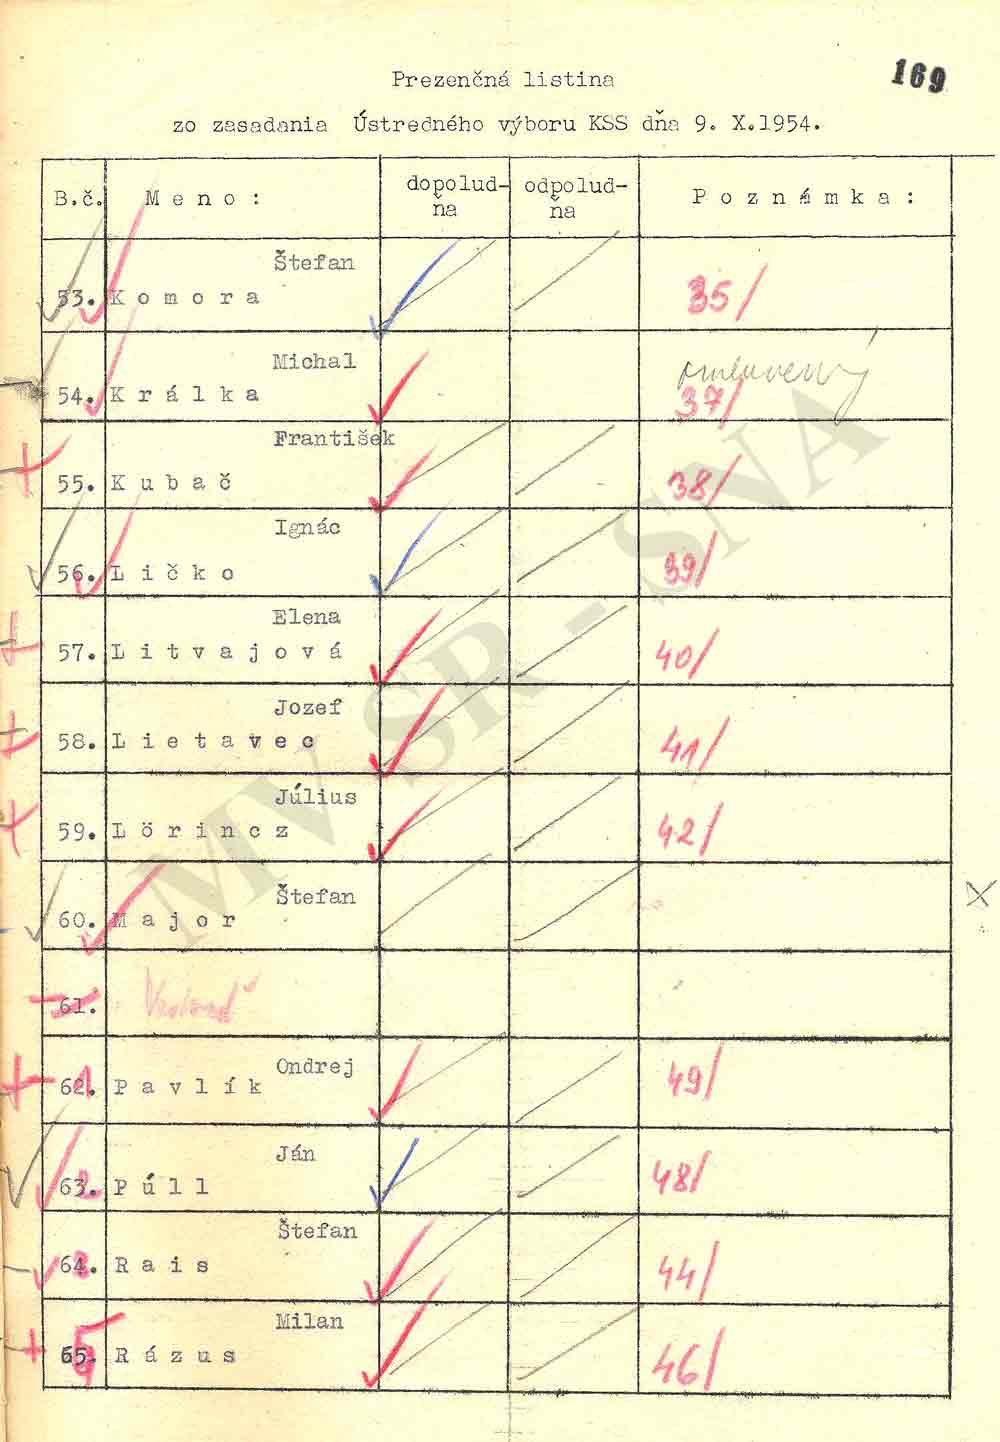 169
Prezenčná listina
zo zasadania Ústredného výboru KSS dňa 9. X.1954.
B.č. Meno: dopolud-ňa odpolud-ňa Poznámka:
Štefan
53. Komora 35/
Michal
54. Králka 37/
František
55. Kubač 38/
Ignác
56. Ličko 39/
Elena
57. Litvajová 40/
Jozef
58. Lietavec 41/
Július
59. Lörincz 42/
Štefan
60. Major X
61.
Ondrej
62. 1 Pavlík 49/
Ján
63. 2 Púll 48/
Štefan
64. 3 Rais 44/
Milan
65. Rázus 46/
MV SR - SNA